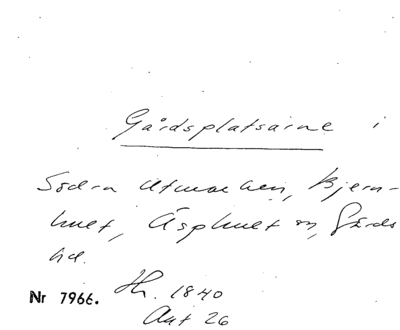 Gårdsplatsarne i
Södra Utmarken, Bjern-
hult, Äsphult sn, Gärds
hd.
Nr 7966. Hr. 1840
Akt 26